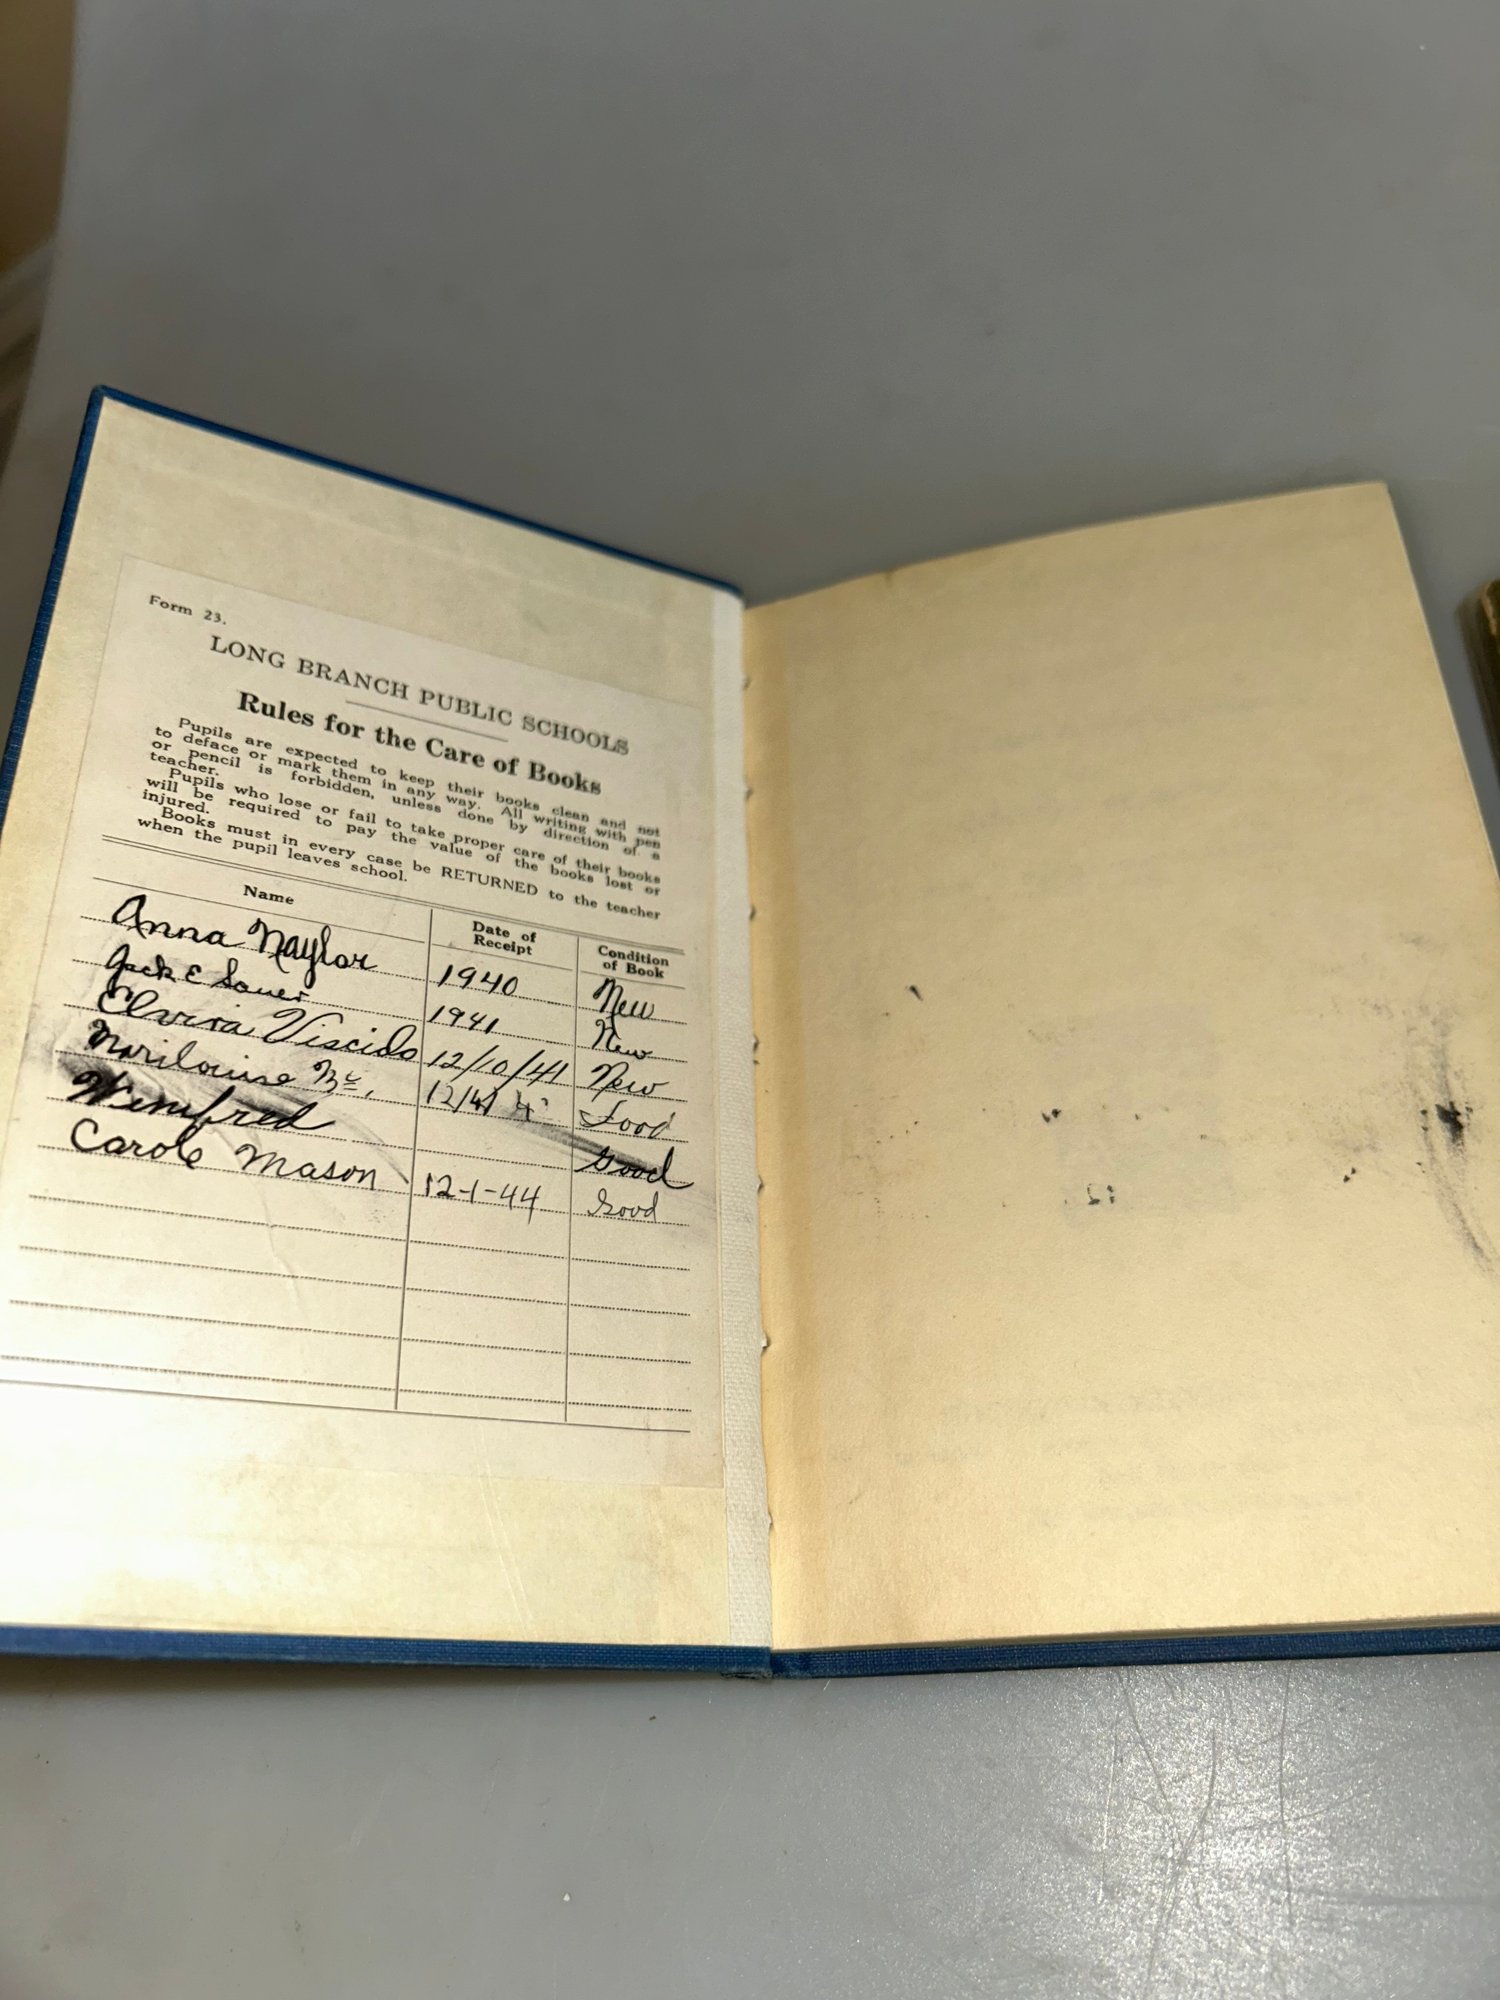 Form 23.
LONG BRANCH PUBLIC SCHOOLS
Rules for the Care of Books
Pupils are expected to keep their books clean and not
to deface or mark them in any way. All writing with pen
or pencil is forbidden, unless done by direction of a
teacher.
Pupils who lose or fail to take proper care of their books
will be required to pay the value of the books lost or
injured.
Books must in every case be RETURNED to the teacher
when the pupil leaves school.
Name Date of Receipt Condition of Book
Anna Naylor 1940 New
Jack E Sauer 1941 New
Elvira Viscido 12/10/41 New
Marilouise Mc, Good
Winifred Good
Carole Mason 12-1-44 Good